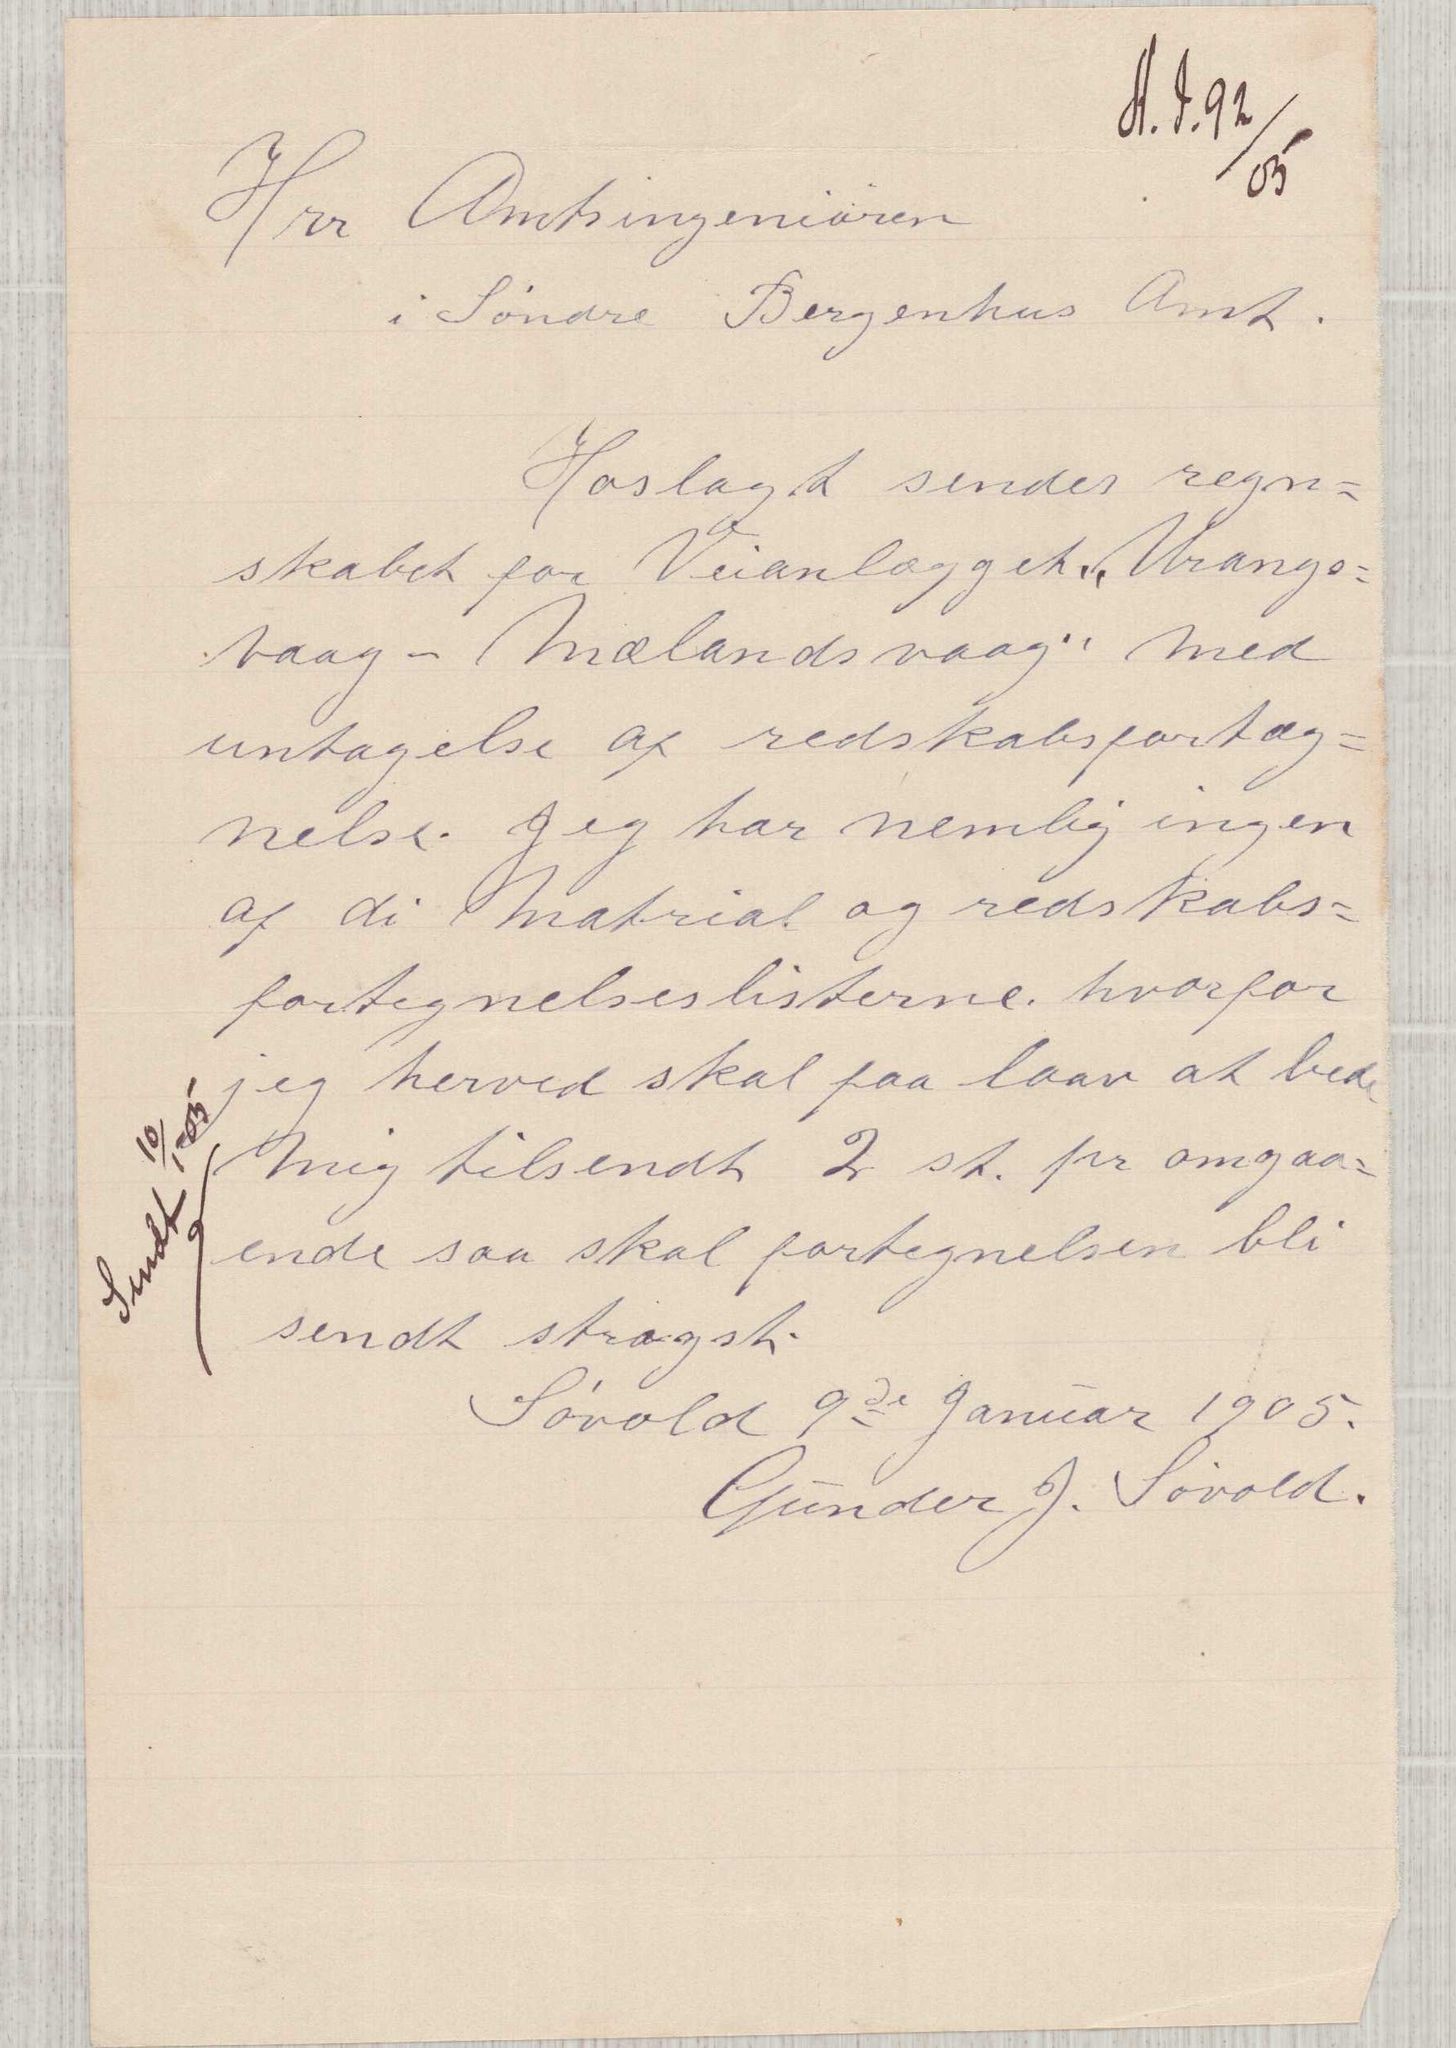 A. I. 92/05
Hrr Amtsingeniøren
i Søndre Bergenhus Amt.
Hoslagt sendes regn=
skabet for Veianlægget „Urangs=
vaag - Mælandsvaag" med
untagelse af redskabsfortæg=
nelse. Jeg har nemlig ingen
af di Matrial og redskabs=
fortegnelseslisterne. hvorfor
jeg herved skal faa laav at bede
mig tilsendt 2 st. pr omgaa=
ende saa skal fortegnelsen bli
sendt stragst.
Søvold 9de Januar 1905.
Gunder J. Søvold.
Sendt 10/1-05